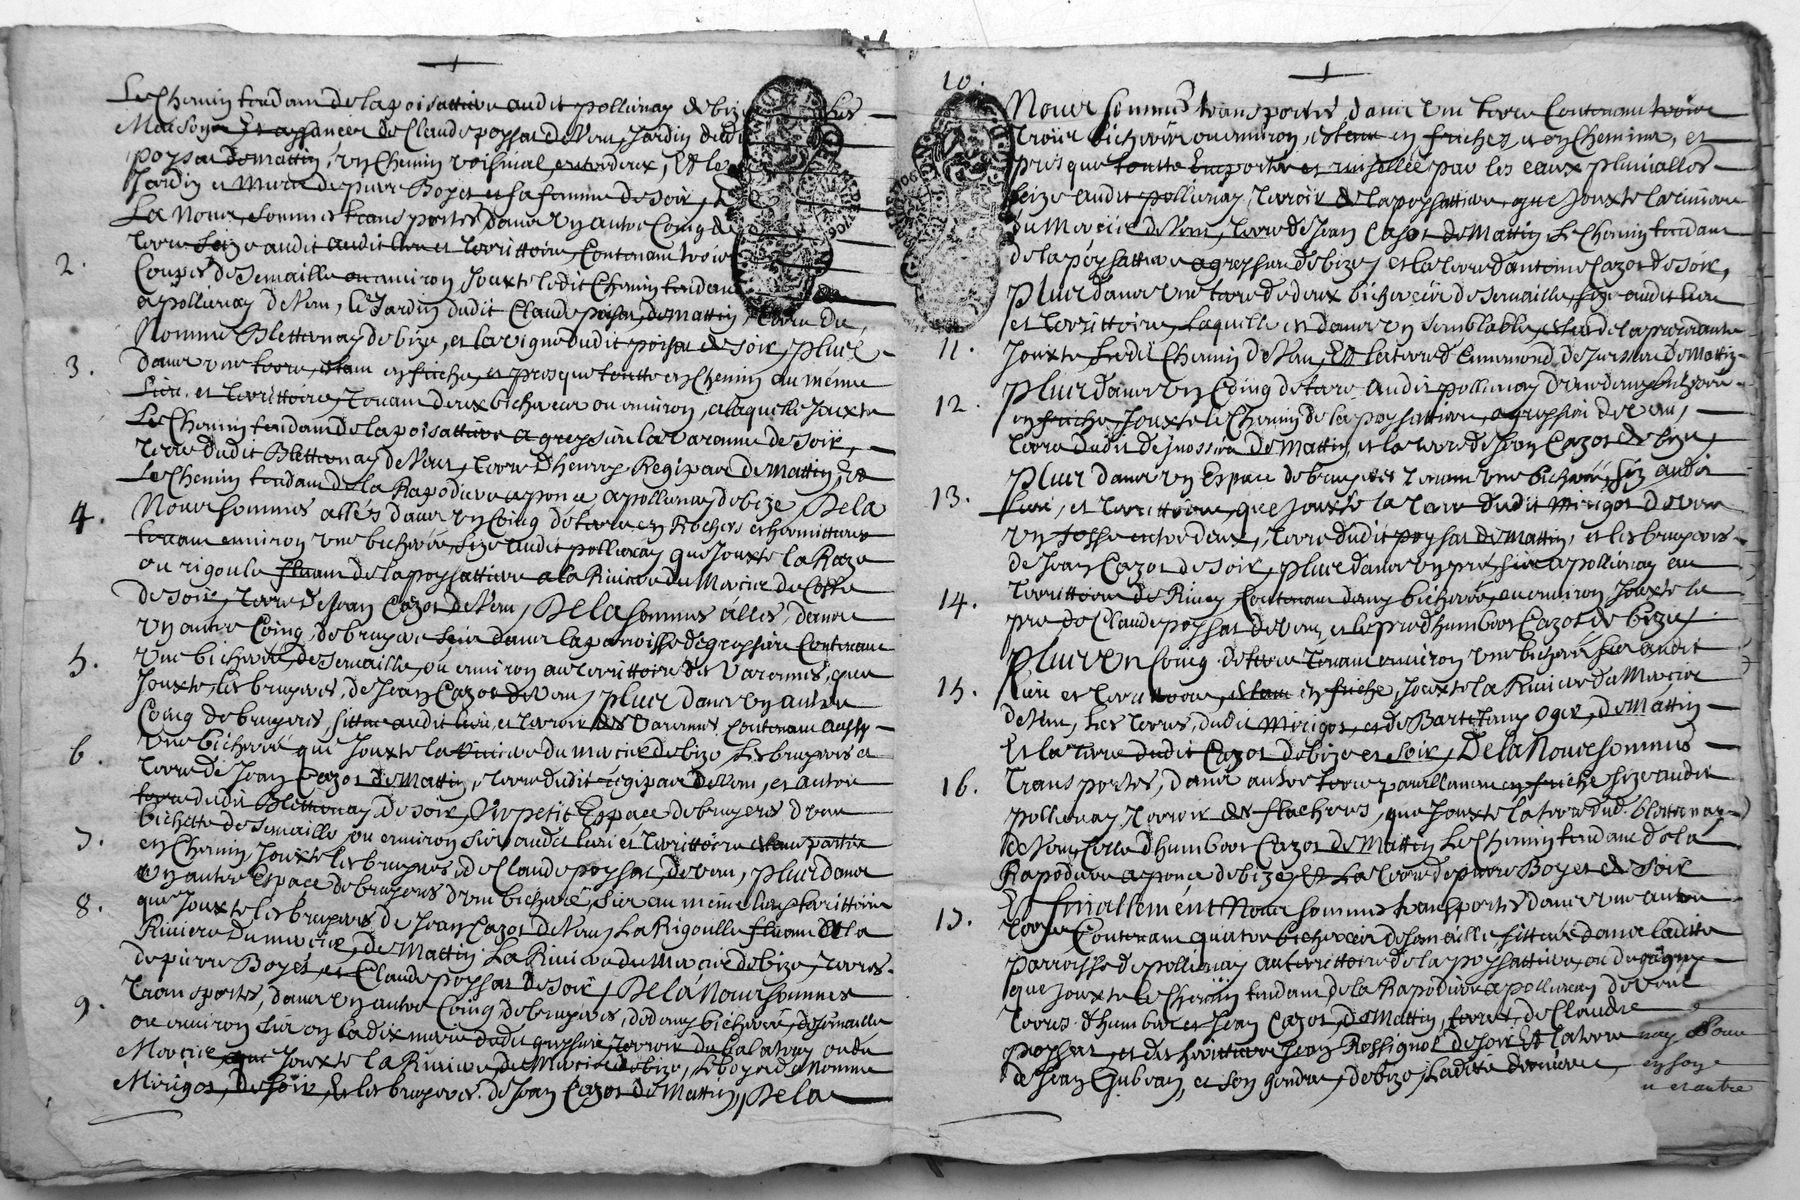 Le Chemin tendant de la poisattiere audit pollienay de bize Les
Maison et aysances de Claude poysat de Vent Jardin dud
poysat de mattin, un Chemin voisinal entredeux, Et le
Jardin et Murs de pierre Boyet et sa femme de soir,
La Nous sommes transportés dans un autre Coing de
terre size audit lieu et territtoire, Contenant trois
2.
Coupes de semaille ou environ Jouxte ledit Chemin tendant
a pollienay de Vent, le Jardin dudit Claude poysat, de mattin, terre du
Nommé Blettenay de bize, et la vigne dudit poysat de soir, Plus
3.
dans une terre, estant en friche, et presque toutte en Chemin au même
Lieu, et territtoire, tenant deux bicherées ou environ, a laquelle Jouxte
Le Chemin tendant de la poisattiere a greysieu la varenne de soir,
terre dudit Blettenay de Vent, terre d'henry Regipas de Mattin, Et
Le Chemin tendant de la Rapodiere a ponce a pollienay de bize De la
4.
Nous sommes allés dans un Coing de terre en Rochers et hermittures
tenant environ une bicherée, size audit pollienay que Jouxte la Raze
ou rigoule fluant de la poysattiere a la Riviere du Mercier de Coste
de soir, terre de Jean Cazot de Vent, De la sommes allés, dans
un autre Coing de bruyere size dans la paroisse de greysieu Contenant
5.
une bicherée, de semaille, ou environ au territtoire des Varennes, que
Jouxte, les bruyeres, de Jean Cazot de Vent, plus dans un autre
Coing de bruyeres sittué audit lieu, et terroir des Varennes, Contenant aussy
6.
une bicherée que Jouxte la Riviere du mercier de bize, les bruyeres et
terre de Jean Cazot de Mattin, terre dudit regipas de Vent, et autre
terre dudit Blettenay, de soir, Un petit Espace de bruyeres d'une
bichette de semaille ou environ size audit lieu et territtoire estant partie
7.
en Chemin Jouxte les bruyeres, de Claude poysat, de vent, plus dans
un autre Espace de bruyeres d'une bicherée, size au même lieu et territtoire
8.
que Jouxte les bruyeres de Jean Cazot de Vent, La Rigoulle fluant a la
Riviere du mercier, de Mattin, La Riviere du Mercier de bize, terres
de pierre Boyet, et Claude poysat de soir, De la Nous sommes
9.
transportés, dans un autre Coing de bruyeres, de deux bicherées, de semaille
ou environ size en la dixmerie dudit greysieu, terroir du balatruy ou du
Mercier, que Jouxte la Riviere du Mercier de bize, le boys du Nommé
Mirigot, de soir, Et les bruyeres de Jean Cazot de Mattin, De la
10.
Nous sommes transportés, dans une terre Contenant
trois bicherées ou environ, estant en friches, et en Chemins, et
presque toutte Emportée et ruissellée par les eaux pluvialles
size audit pollienay, terroir de la poysattiere, que Jouxte la riviere
du Mercier de Vent, terre de Jean Cazot de Mattin, Le Chemin tendant
de la poysattiere a greysieu de bize, et la terre d'antoine Cazot de soir,
Plus dans une terre de deux bicherées de semaille, size audit lieu
et territtoire, Laquelle est dans un semblable, de la precedante
11.
Jouxte Ledit Chemin de Vent, Et la terre d'Ennemond de Jussieu de Mattin
12.
Plus dans un Coing de terre audit pollienay d'une demy bicherée
en friche, Jouxte le Chemin de la poysattiere, a greysieu de vent,
terre dudit de Jussieu de Mattin, et la terre de Jean Cazot de bize,
13.
Plus dans un Espace de bruyeres tenant une bicherée, size audit
Lieu, et territtoire, que Jouxte la terre dudit Mirigot de vent
un fossé entredeux, terre dudit poysat de Mattin, et les bruyeres
de Jean Cazot de soir, plus dans un pré size a pollienay au
14.
territtoire de Riney, Contenant demy bicherée, ou environ Jouxte le
pré de Claude poysat de vent, et le pré d'humbert Cazot de bize,
Plus un Coing de terre tenant environ une bicherée size audit
15.
Lieu et territtoire, estant en friche, Jouxte la Riviere du Mercier
de Vent, les terres, dudit Mirigot, et de Barthelemy Oger, de Mattin
Et la terre dudit Cazot de bize et soir, De la Nous sommes
16.
transportés, dans autre terre pareillement en friche size audit
pollienay, terroir des flacheres, que Jouxte la terre dud. blettenay
de Vent, celle d'humbert Cazot de Mattin Le Chemin tendant de la
Rapodiere a ponce de bize, Et La terre de pierre Boyet de soir
17.
Et finallement Nous sommes transportés dans une autre
terre Contenant quatre bicherées de semaille, sittuée dans laditte
parroisse de pollienay au territtoire de la poysattiere, ou du
que Jouxte le Chemin tendant de la Rapodiere a pollienay de vent
terres d'humbert et Jean Cazot, de Mattin, terres, de Claude
poysat, et des heritiers Jean Rossignol de soir Et la terre
de Jean Gubian, et son gendre, de bize, Ladite derniere,